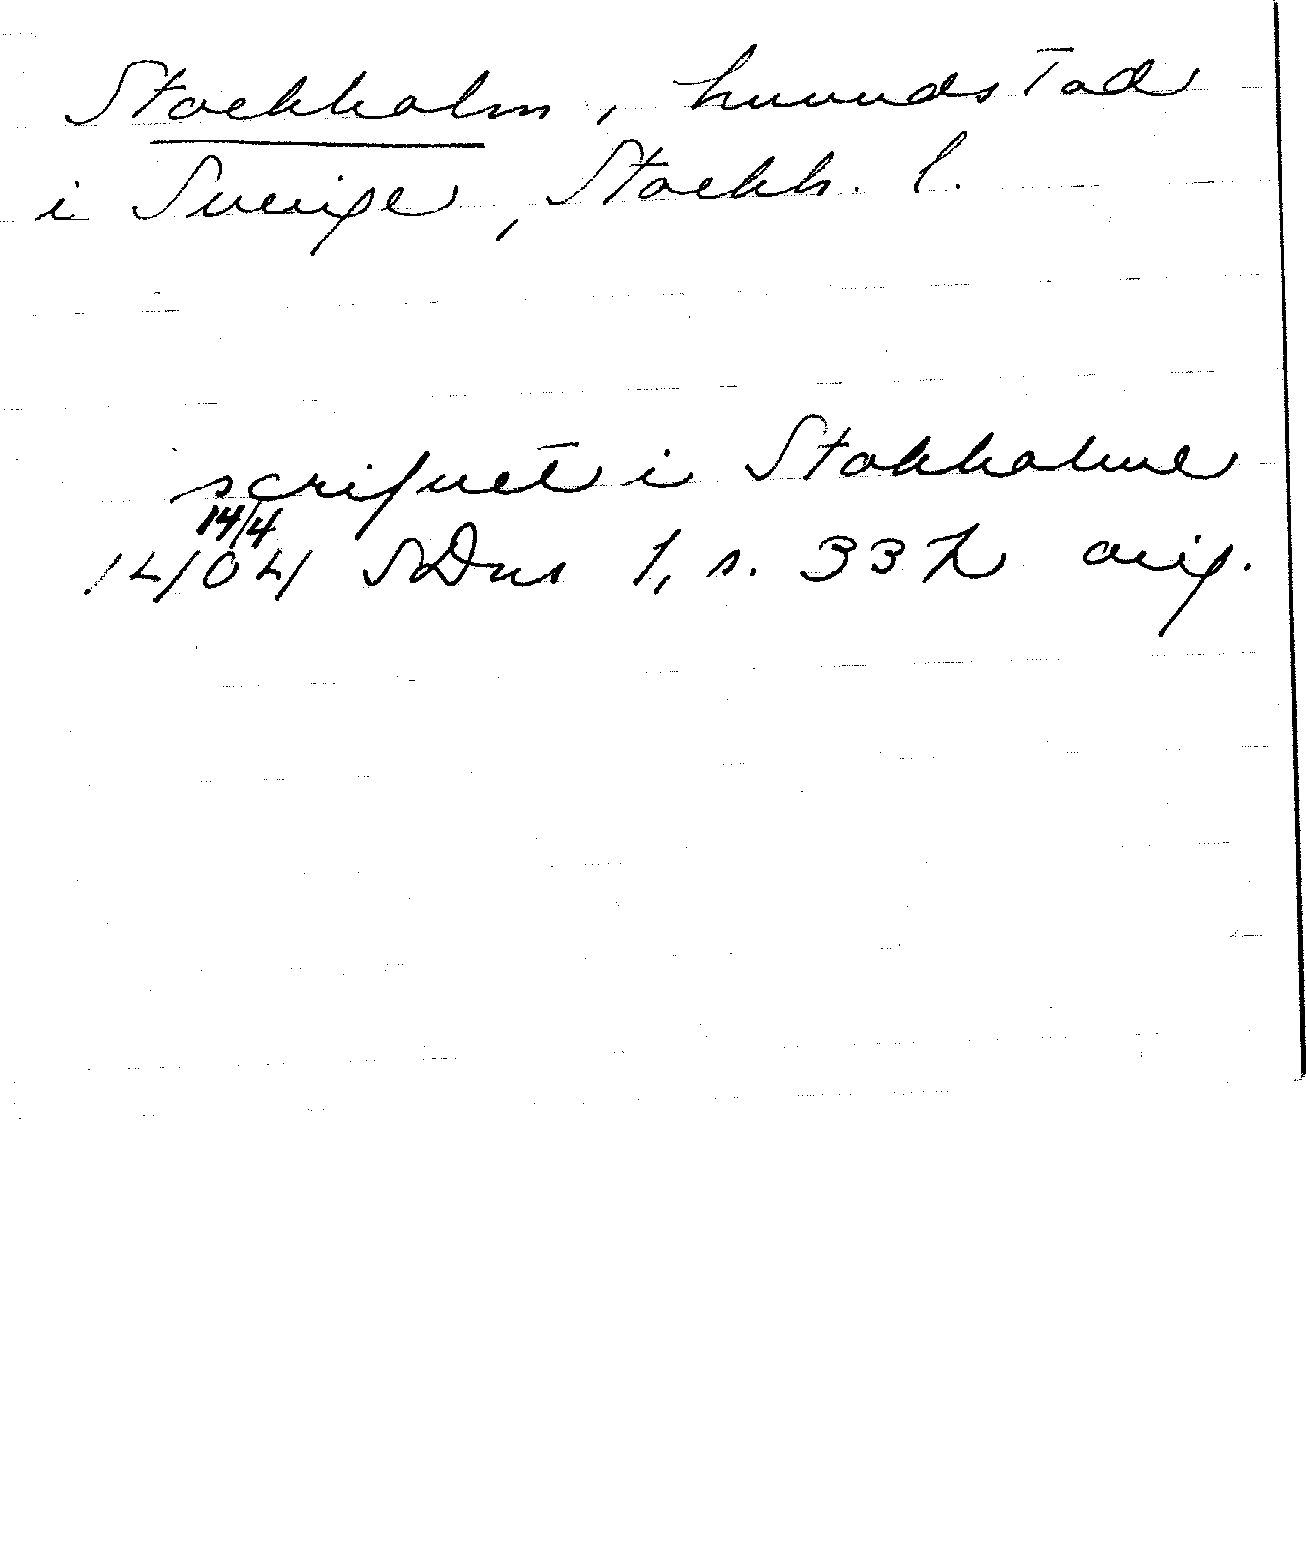 Stockholm, huvudstad
i Sverige, Stockh. l.
scrifuet i Stokholme
14/4
1404 SDns 1, s. 332 orig.